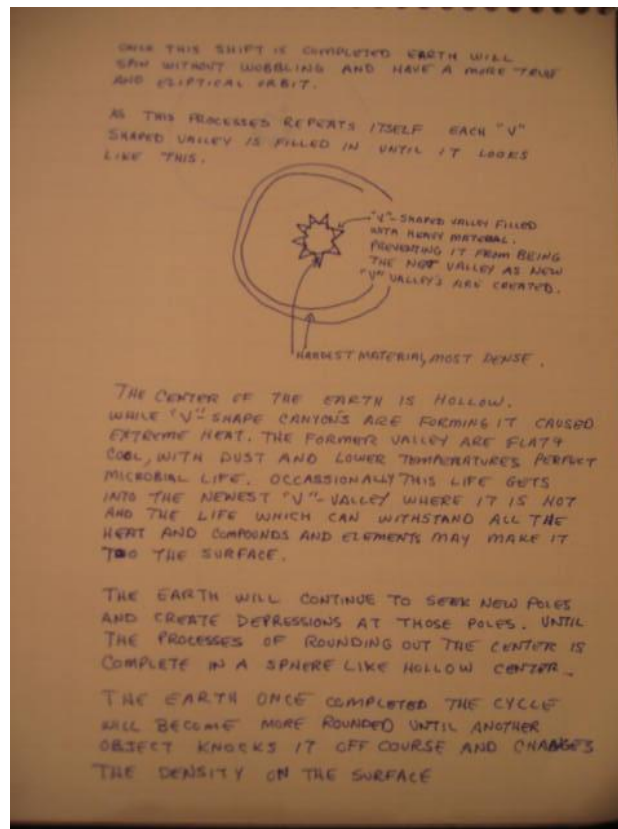 ONCE THIS SHIFT IS COMPLETED EARTH WILL
SPIN WITHOUT WOBBLING AND HAVE A MORE TRUE
AND ELIPTICAL ORBIT.
AS THIS PROCESSES REPEATS ITSELF EACH "V"
SHAPED VALLEY IS FILLED IN UNTIL IT LOOKS
LIKE THIS.
"V"-SHAPED VALLEY FILLED
WITH HEAVY MATERIAL.
PREVENTING IT FROM BEING
THE NEXT VALLEY AS NEW
"V" VALLEY'S ARE CREATED.
HARDEST MATERIAL, MOST DENSE.
THE CENTER OF THE EARTH IS HOLLOW.
WHILE "V"-SHAPE CANYON'S ARE FORMING IT CAUSED
EXTREME HEAT. THE FORMER VALLEY ARE FLAT &
COOL, WITH DUST AND LOWER TEMPERATURES PERFECT
MICROBIAL LIFE. OCCASSIONALLY THIS LIFE GETS
INTO THE NEWEST "V"-VALLEY WHERE IT IS HOT
AND THE LIFE WHICH CAN WITHSTAND ALL THE
HEAT AND COMPOUNDS AND ELEMENTS MAY MAKE IT
TOO THE SURFACE.
THE EARTH WILL CONTINUE TO SEEK NEW POLES
AND CREATE DEPRESSIONS AT THOSE POLES. UNTIL
THE PROCESSES OF ROUNDING OUT THE CENTER IS
COMPLETE IN A SPHERE LIKE HOLLOW CENTER.
THE EARTH ONCE COMPLETED THE CYCLE
WILL BECOME MORE ROUNDED UNTIL ANOTHER
OBJECT KNOCKS IT OFF COURSE AND CHANGES
THE DENSITY ON THE SURFACE